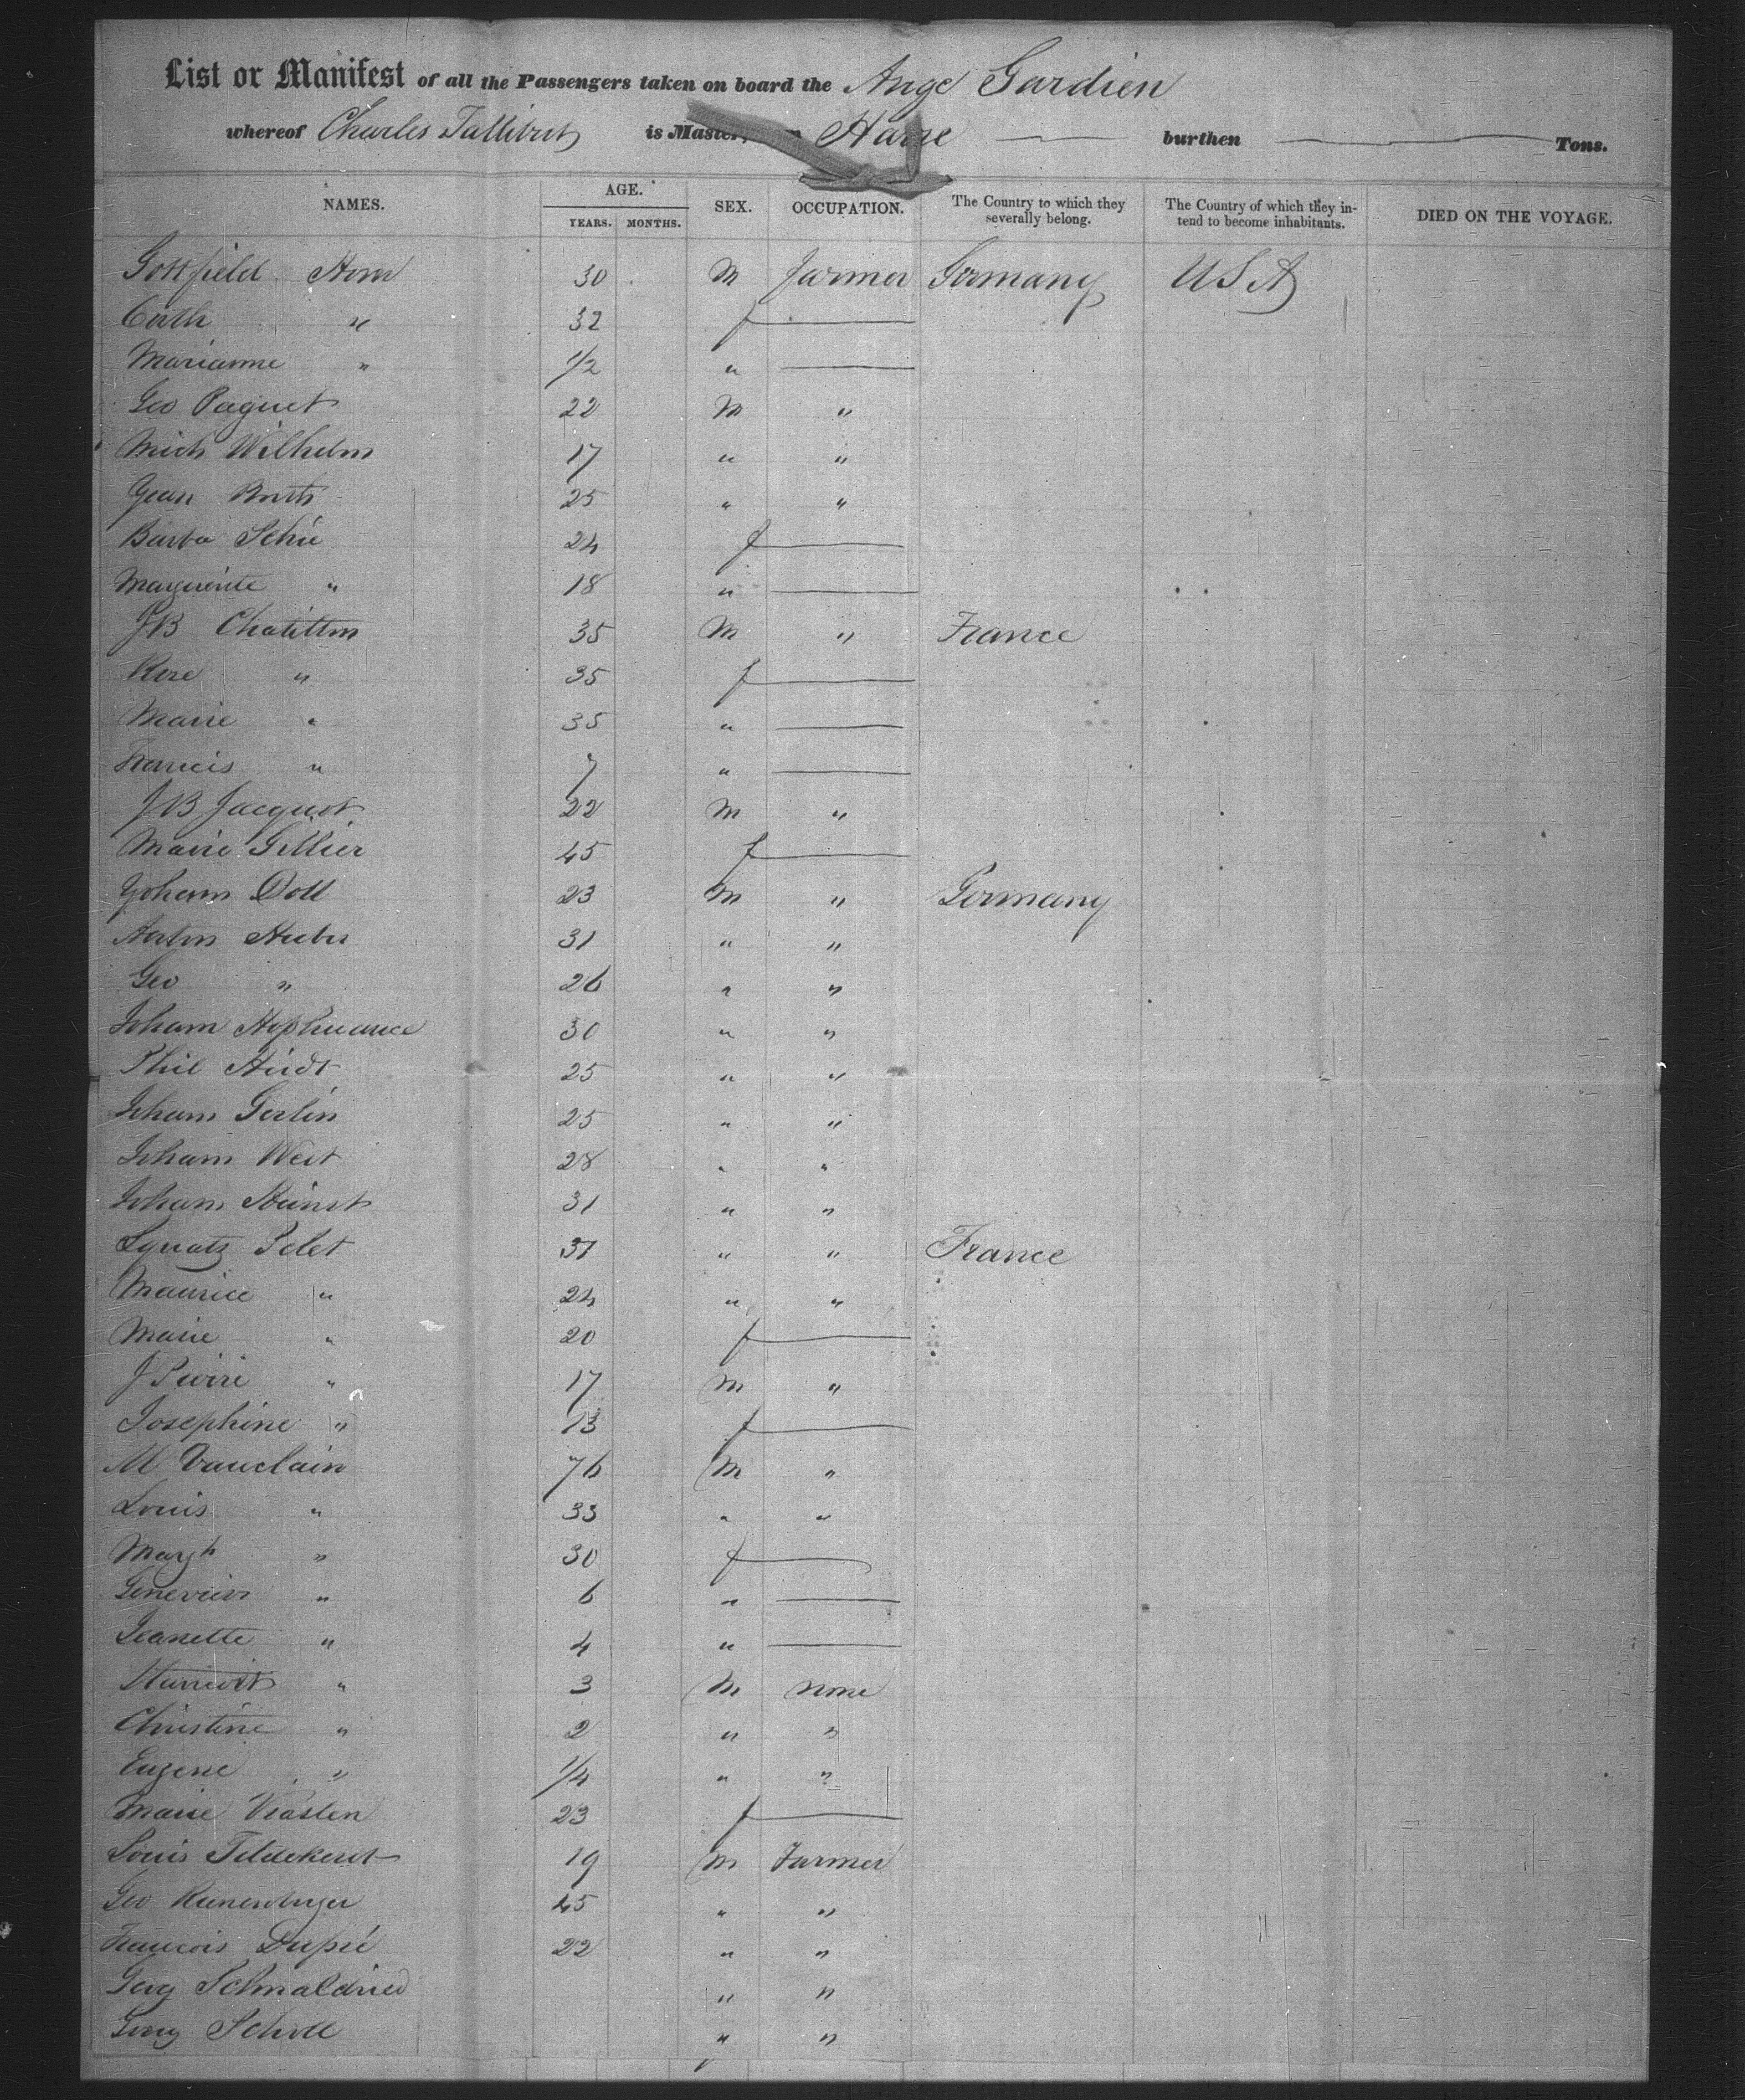 List or Manifest of all the Passengers taken on board the Ange Gardien
whereof Charles Tallibut is Master, Havre burthen Tons.
NAMES. AGE. YEARS. MONTHS. SEX. OCCUPATION. The Country to which they severally belong. The Country of which they intend to become inhabitants. DIED ON THE VOYAGE.
Gottfield Horn 30 M farmer Germany USA
Cath " 32 f
Marianne " 1/2 "
Geo Paquet 22 M "
Mich Wilhelm 17 " "
25 " "
Barba Schie 24 f
Marguerite " 18 "
JB Chatillon 35 M " France
Rose " 35 f
Marie " 35 "
Francis " 7 "
JB Jacquot 22 M "
Marie Gillier 45 f
Yoham Doll 23 M " Germany
Anton Huber 31 " "
Geo " 26 " "
Joham 30 " "
Phil Heidt 25 " "
Joham Gerlin 25 " "
Joham Weit 28 " "
Joham 31 " "
Ignatz Pelet 37 " " France
Maurice " 24 " "
Marie " 20 f
J Pierre " 17 M "
Josephine " 13 f
M Vauclain 76 M "
Louis " 33 " "
Margt " 30 f
Geneviev " 6 "
Jeanette " 4 "
" 3 M none
Christine " 2 " "
Eugene " 1/4 " "
Marie Viasten 23 f
Louis 19 M Farmer
Geo 45 " "
Francois Dupré 22 " "
Schmaldried " "
Scholl " "